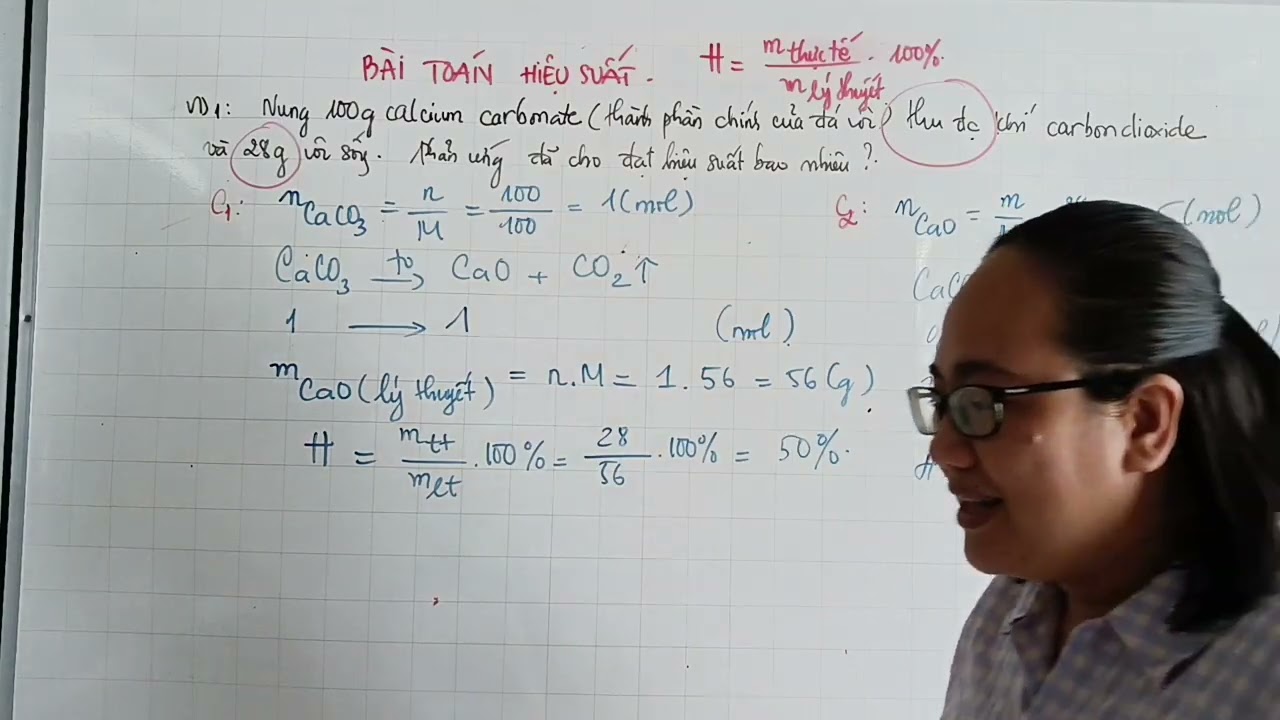 BÀI TOÁN HIỆU SUẤT. H = m thực tế / m lý thuyết . 100%.
VD1: Nung 100g calcium carbonate (thành phần chính của đá vôi) thu đc khí carbon dioxide
và 28g vôi sống. Phản ứng đã cho đạt hiệu suất bao nhiêu?.
C1: nCaCO3 = n/M = 100/100 = 1(mol)
CaCO3 t0→ CaO + CO2↑
1 → 1 (mol)
mCaO(lý thuyết) = n.M = 1.56 = 56(g).
H = mtt/mlt .100% = 28/56 .100% = 50%.
C2: nCaO = m (mol)
CaC